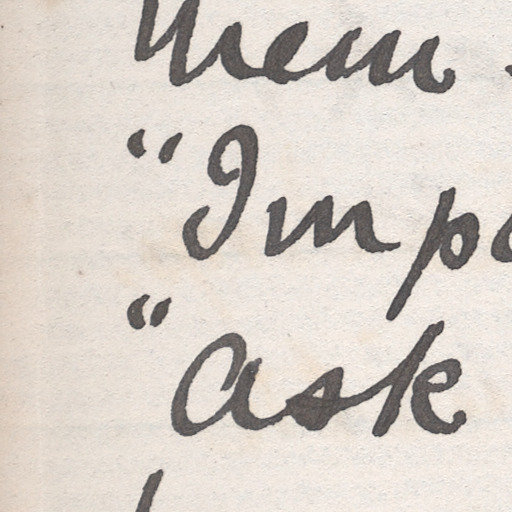 them
"Impo
"ask